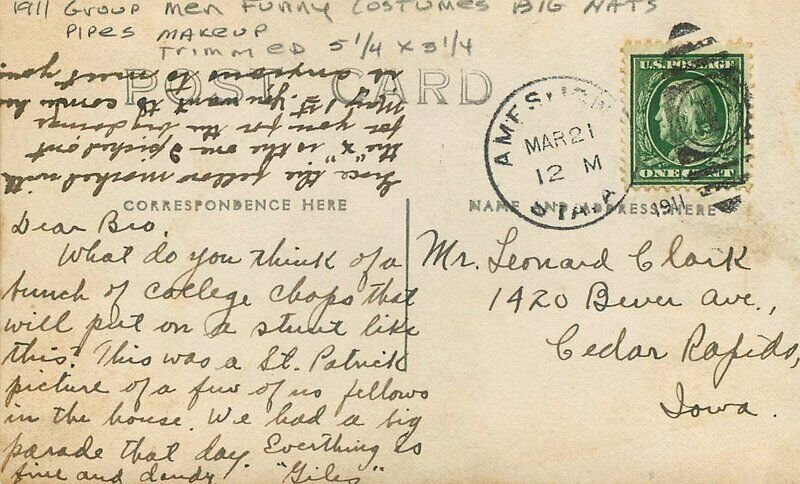 1911 GROUP MEN FUNNY COSTUMES BIG HATS
PIPES MAKEUP
TRIMMED 5 1/4 x 3 1/4
POST CARD
CORRESPONDENCE HERE
NAME AND ADDRESS HERE
AMES
MAR 21
12 M
IOWA
1911
U.S. POSTAGE
ONE CENT
Dear Bro,
What do you think of a
bunch of college chaps that
will put on a stunt like
this? This was a St. Patrick
picture of a few of us fellows
in the house. We had a big
parade that day. Everthing is
fine and dandy. "Giles"
the fellow marked with
the "x" is the one I picked out
for you for the big doings
May 1st if you want to come
anxious to meet you.
Mr. Leonard Clark
1420 Bever Ave.,
Cedar Rapids,
Iowa.